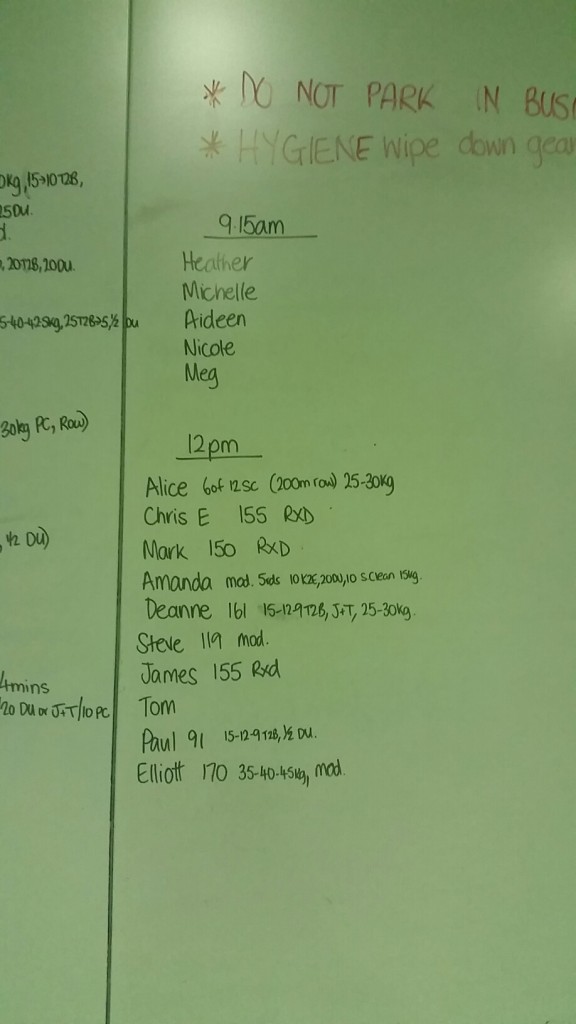 * DO NOT PARK IN BUSI
* HYGIENE wipe down gear
0kg, 15→10T2B,
25DU.
d.
, 20T2B, 20DU.
5-40-42.5kg, 25T2B→5, ½ DU
30kg PC, Row)
, ½ DU)
4mins
20 DU or J+T/10 PC
9.15am
Heather
Michelle
Aideen
Nicole
Meg
12pm
Alice 6 of 12 SC (200m row) 25-30kg
Chris E 155 RXD
Mark 150 RXD
Amanda mod. 10 K2E, 20DU, 10 S.Clean 15kg.
Deanne 161 15-12-9 T2B, J+T, 25-30kg.
Steve 119 mod.
James 155 Rxd
Tom
Paul 91 15-12-9 T2B, ½ DU.
Elliott 170 35-40-45kg, mod.